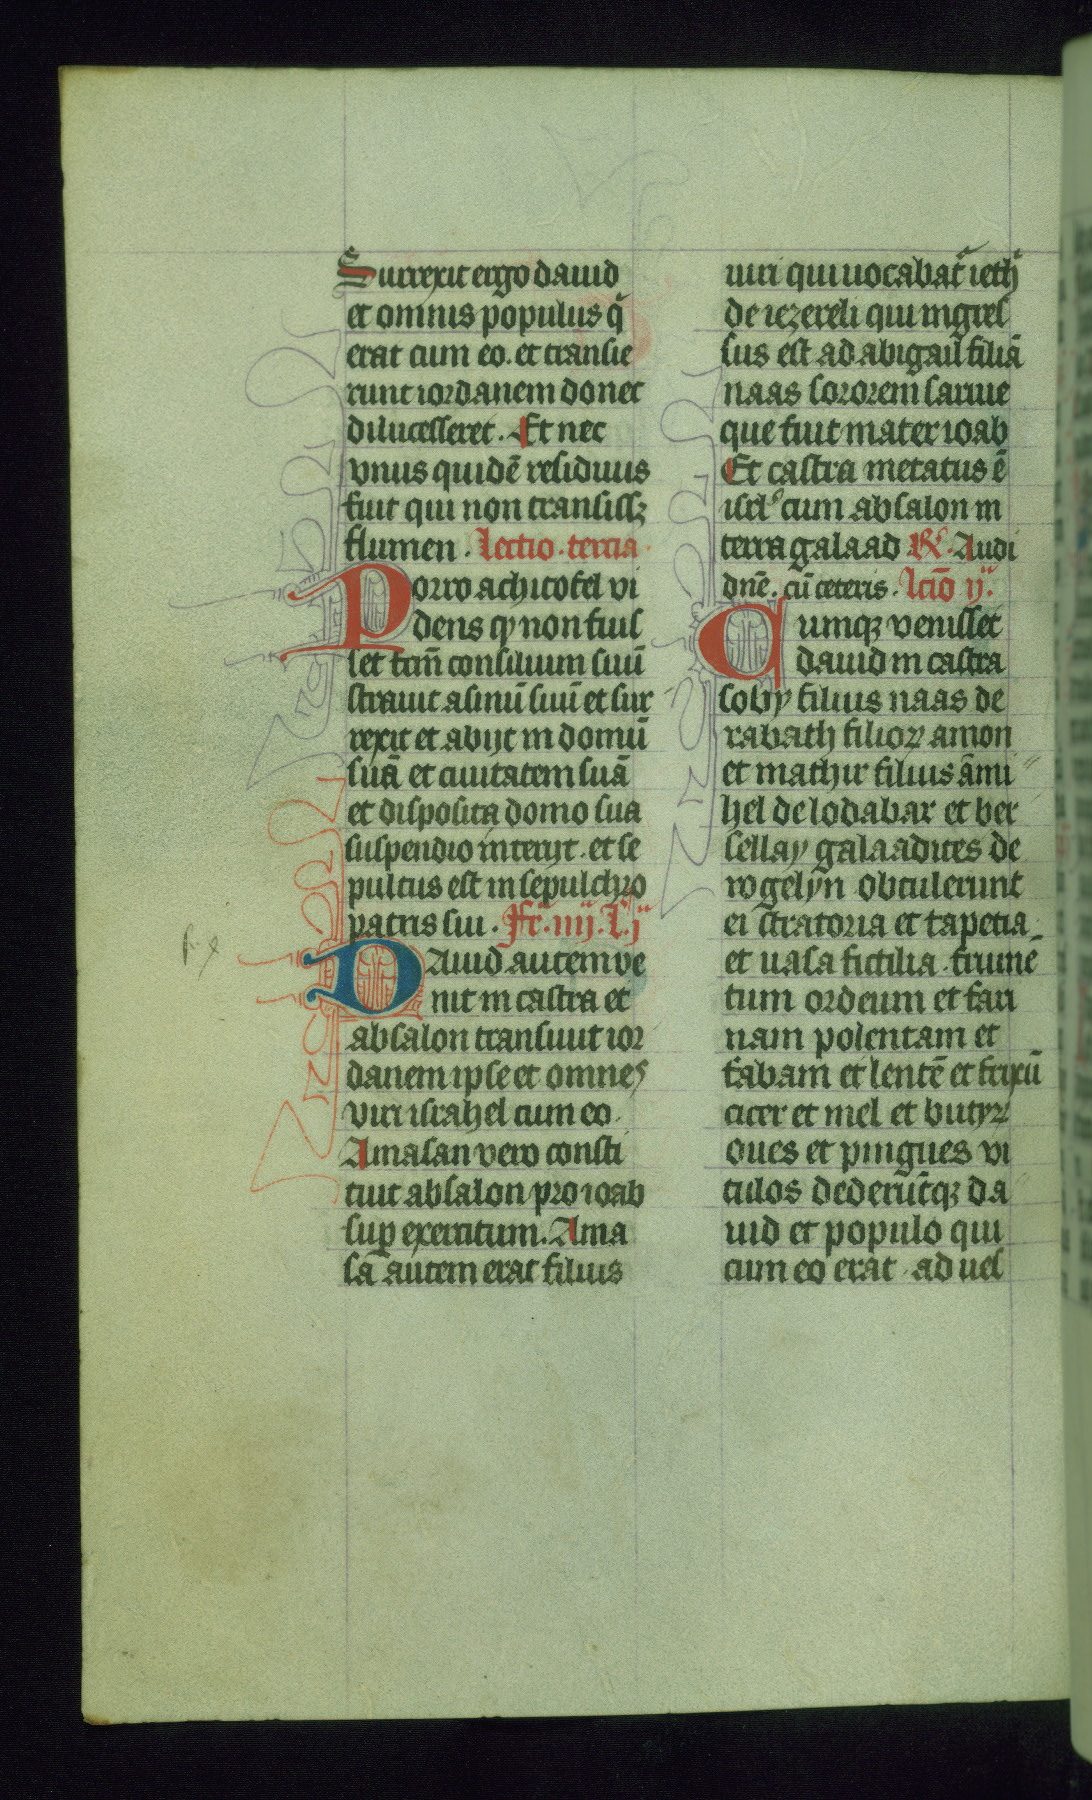 Surrexit ergo dauid
et omnis populus q̇
erat cum eo. et transie
runt iordanem donec
dilucesseret. Et nec
vnus quidē residuus
fuit qui non transissꝫ
flumen. Lectio tercia
Porro achitofel vi
dens qͥ non fuis
set fcm̄ consilium suū
strauit asinū suū et sur
rexit et abijt in domū
suā et ciuitatem suā
et disposita domo sua
suspendio interijt. et se
pultus est in sepulchro
patris sui. Fr̄. iiij. L. j
DAuid autem ve
nit in castra et
absalon transiuit ior
danem ipse et omnes
viri israhel cum eo.
Amasan vero consti
tuit absalon pro ioab
suꝑ exercitum. Ama
sa autem erat filius
uiri qui uocabat̄ ieth
de iezereli qui ingres
sus est ad abigail filiā
naas sororem saruie
que fuit mater ioab
Et castra metatus ē
isrl̓ cum absalon in
terra galaad ℟. Audi
dn̄e. cū ceteris. lcıō ij.
Cumqꝫ venisset
dauid in castra
soby filius naas de
rabath filioꝝ amon
et mathir filius āmi
hel de lodabar et ber
sellay galaadites de
rogelyn obtulerunt
ei stratoria et tapetia
et uasa fictilia. frumē
tum ordeum et fari
nam polentam et
fabam et lentē et frixū
cicer et mel et butyꝝ
oues et pingues vi
tulos dederūtqꝫ da
uid et populo qui
cum eo erat ad ues